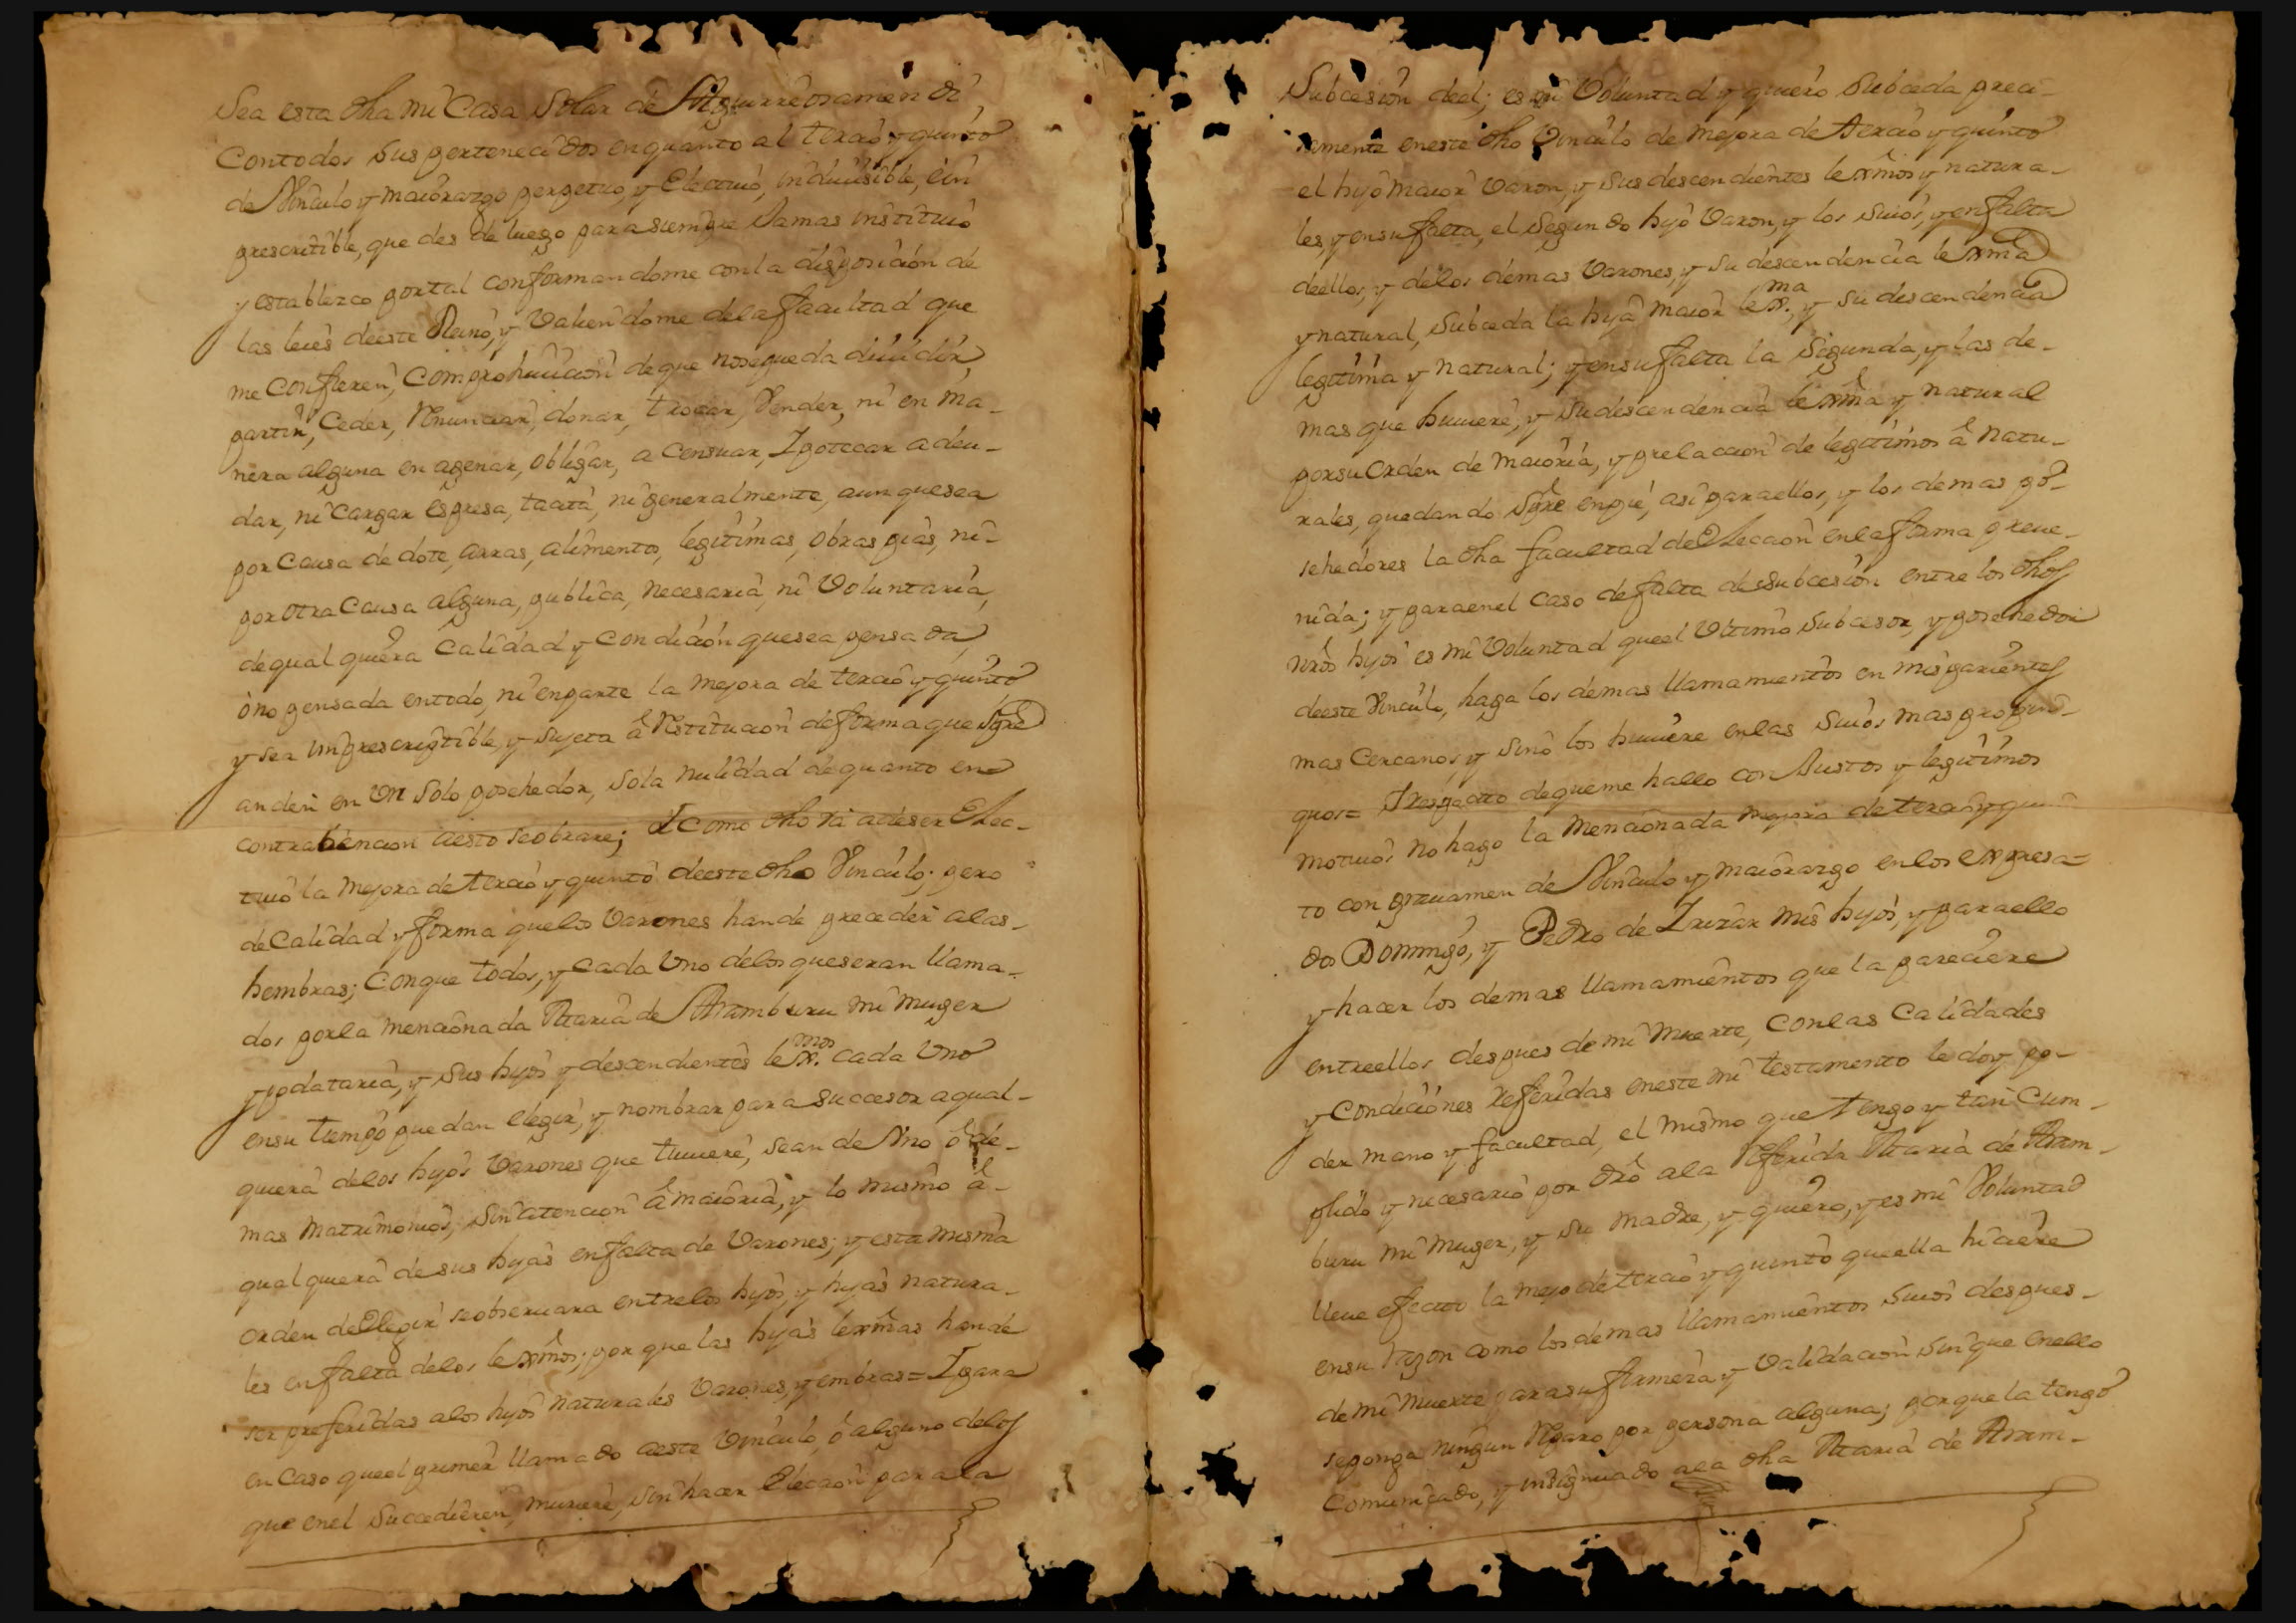 Sea esta dha mi Casa Solar de Aguirreoramendi,
Contodos sus pertenecidos enquanto al tercio y quinto
de Vinculo y maiorazgo perpetuo, y Electiuo, indiuisible, e in
prescritible, que des de luego para siempre Jamas instituio
y establezco portal conformandome conla disposicion de
las leies deeste Reino, y Valiendome dela facultad que
me Confieren, Comprohiuicion de que nosepueda diuidir,
partir, Ceder, Renunciar, donar, trocar, Vender, ni en ma-
nera alguna en agenar, obligar, a Censuar, Ipotecar adeu-
dar, ni Cargar Espresa, tacita, ni generalmente, aunquesea
por Causa de dote, arras, alimentos, legitimas, obras pias, ni-
por otra Causa alguna, publica, necesaria, ni Voluntaria,
dequalquiera Calidad y Condicion quesea pensada,
ò no pensada entodo, ni enparte la mejora de tercio y quinto
y sea inprescriptible, y sujeta à Restitucion deforma que spre
anden en Un solo posehedor, sola nulidad dequanto en
contrabencion aesto seobrare; I como dho va adeser Elec-
tiuo la mejora de tercio y quinto deeste dho Vinculo; pero
deCalidad y forma quelos Varones hande preceder alas-
hembras; Conque todos, y Cada Uno delos queseran llama-
dos porla mencionada Maria de Aramburu mi muger
y podataria, y sus hijos y descendientes lexmos. cada Uno
ensu tiempo puedan elegir, y nombrar para succesor aqual-
quiera delos hijos Varones que tuuiere, sean de Uno ò de-
mas matrimonios, sin atencion à maioria, y lo mismo à-
qualquiera desus hijas enfalta de Varones; y esta misma
orden deElegir seobseruara entrelos hijos, y hijas natura-
les enfalta delos lexmos; por que las hijas lexmas hande
ser preferidas alos hijos naturales Varones, y embras = I para
en Caso queel primer llamado aeste Vinculo, ò alguno delos
que enel succedieren, muriere, sin hacer Eleccion para la
Subcesion deel; es mi Voluntad y quiero subceda preci-
samente eneste dho Vinculo de mejora de tercio y quinto
el hijo maior Varon, y sus descendientes lexmos y natura-
les, y ensu falta, el segundo hijo Varon, y los suios, y enfalta
deellos, y delos demas Varones, y su descendencia lexma
y natural, subceda la hija maior lexma., y su descendencia
legitima y natural; y ensu falta la segunda, y las de-
mas que huuiere, y su descendencia lexma y natural
porsu Orden de maioria, y prelacion de legitimos à natu-
rales, quedando spre enpie, asi paraellos, y los demas po-
sehedores la dha facultad deEleccion enla forma preue-
nida; y paraenel caso defalta desubcesion entre los dhos
nros hijos es mi Voluntad queel Ultimo subcesor, y posehedor
deeste Vinculo, haga los demas llamamientos en mis parientes
mas Cercanos, y sino los huuiere enlas suios mas propin-
quos = I respecto dequeme hallo con Justos y legitimos
motiuos no hago la mencionada mejora de tercio y quin
to con grauamen de Vinculo y maiorazgo enlos expresa=
dos Domingo, y Pedro de Irizar mis hijos, y paraello
y hacer los demas llamamientos que la pareciere
entreellos despues de mi muerte, Conlas Calidades
y Condiciones Referidas eneste mi testamento le doy po-
der mano y facultad, el mismo que tengo y tan Cum-
plido y necesario por dro ala Referida Maria de Aram-
buru mi muger, y su madre, y quiero, y es mi Voluntad
lleue efecto la mejo de tercio y quinto queella hiciere
ensu Razon como los demas llamamientos suios despues-
de mi muerte parasu firmeza y Validacion sin que enello
seponga ningun Reparo por persona alguna; porque la tengo
Comunicado, y insignuado ala dha Maria de Aram-